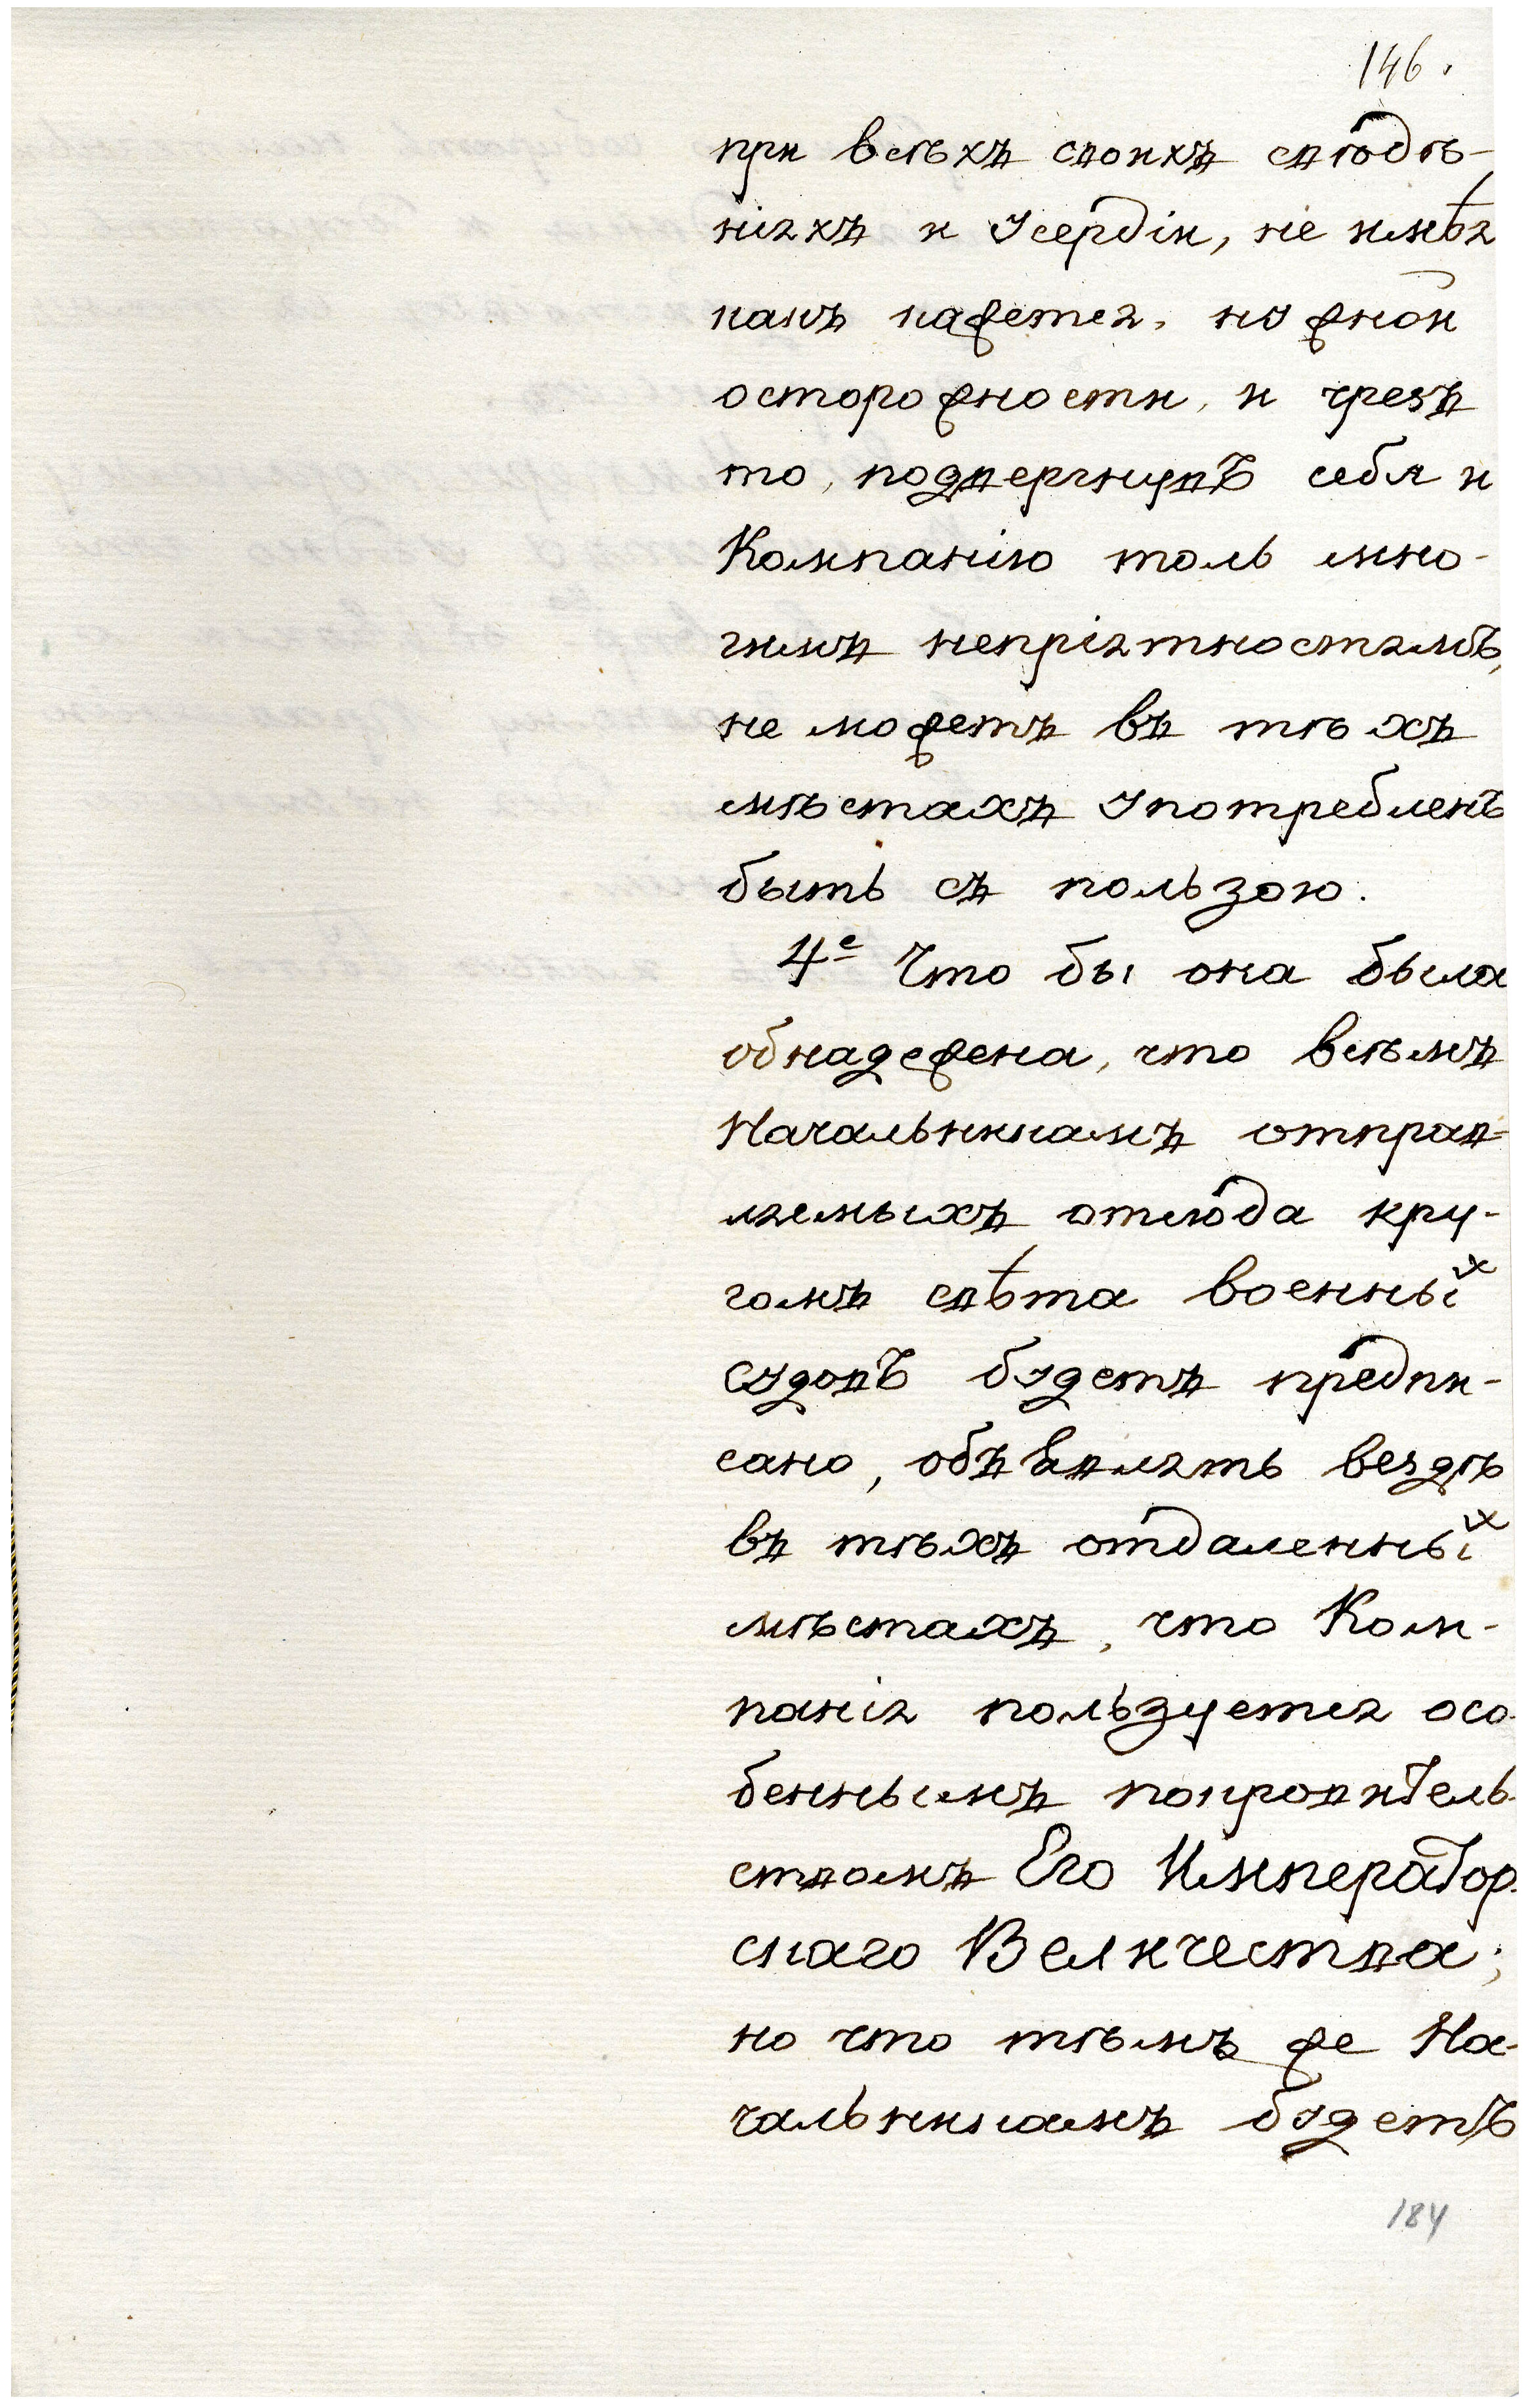 146.
при всѣхъ своихъ свѣдѣ-
нiяхъ и усердiи, не имѣя
какъ кажется, нужной
осторожности, и чрезъ
то, подвергнувъ себя и
Компанiю толь мно-
гимъ непрiятностямъ,
не можетъ въ тѣхъ
мѣстахъ употребленъ
быть съ пользою.
4е Что бы она была
обнадежена, что всѣмъ
Начальникамъ отправ-
ляемыхъ отсюда кру-
гомъ свѣта военныхъ
судовъ будетъ предпи-
сано, объявлять вездѣ
въ тѣхъ отдаленныхъ
мѣстахъ, что Ком-
панiя пользуется осо-
беннымъ покровитель-
ствомъ Его Император-
скаго Величества;
но что тѣмъ же На-
чальникамъ будетъ
184